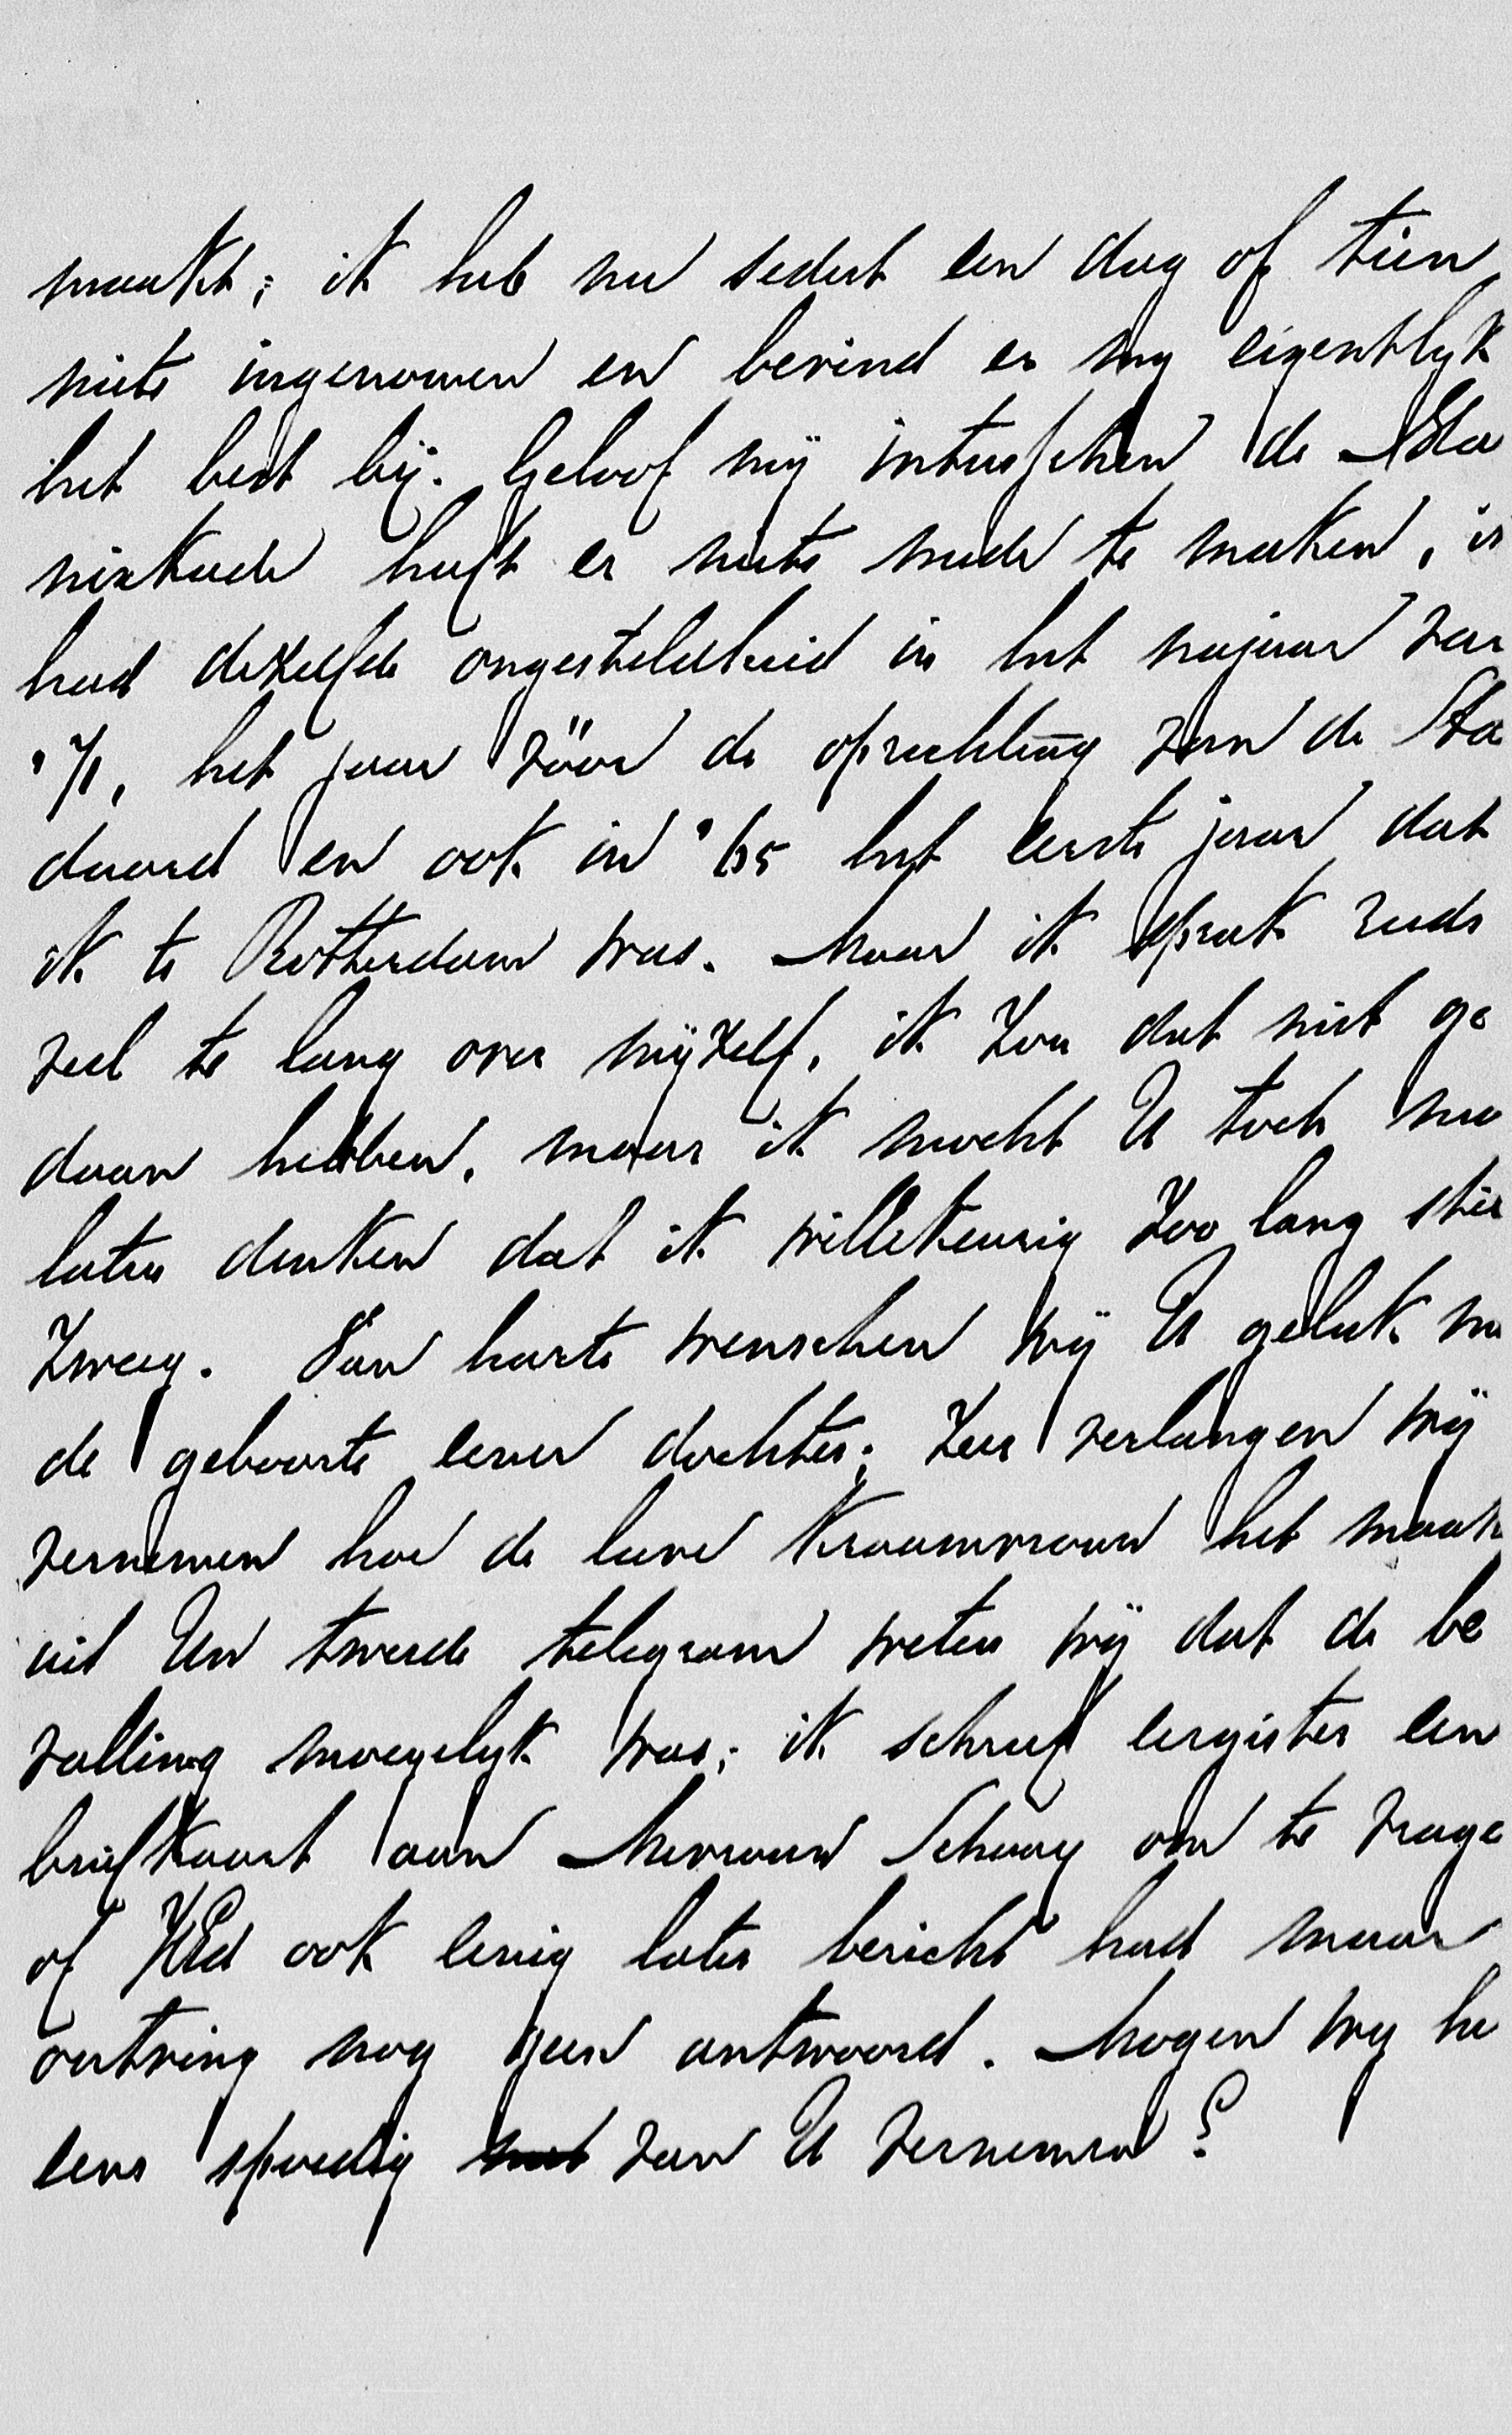 maakt; ik heb nu sedert een dag of tien
niets ingenomen en bevind er my eigentlyk
het best bij. Geloof mij intusschen de Sta
niskade heeft er niets mede te maken, ik
had dezelfde ongesteldheid in het najaar van
'71, het jaar vóór de oprichting van de Sta
daard en ook in '65 het eerste jaar dat
ik te Rotterdam was. Maar ik sprak reeds
veel te lang over mijzelf, ik zou dat niet ge
daan hebben, maar ik mocht U toch niet
laten denken dat ik willekeurig zoo lang stil
zweeg. Van harte wenschen wij U geluk m
de geboorte eener dochter; zeer verlangen wij
vernemen hoe de lieve kraamvrouw het maak
uit Uw tweede telegram weten wij dat de be
valling moeyelyk was; ik schreef eergister een
briefkaart aan Mevrouw Schaay om te vrage
of HEd ook eenig later bericht had maar
ontving nog geen antwoord. Mogen wy he
eens spoedig van U vernemen?